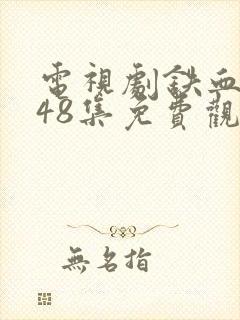 電視劇鉄血
48集免費觀
無名指